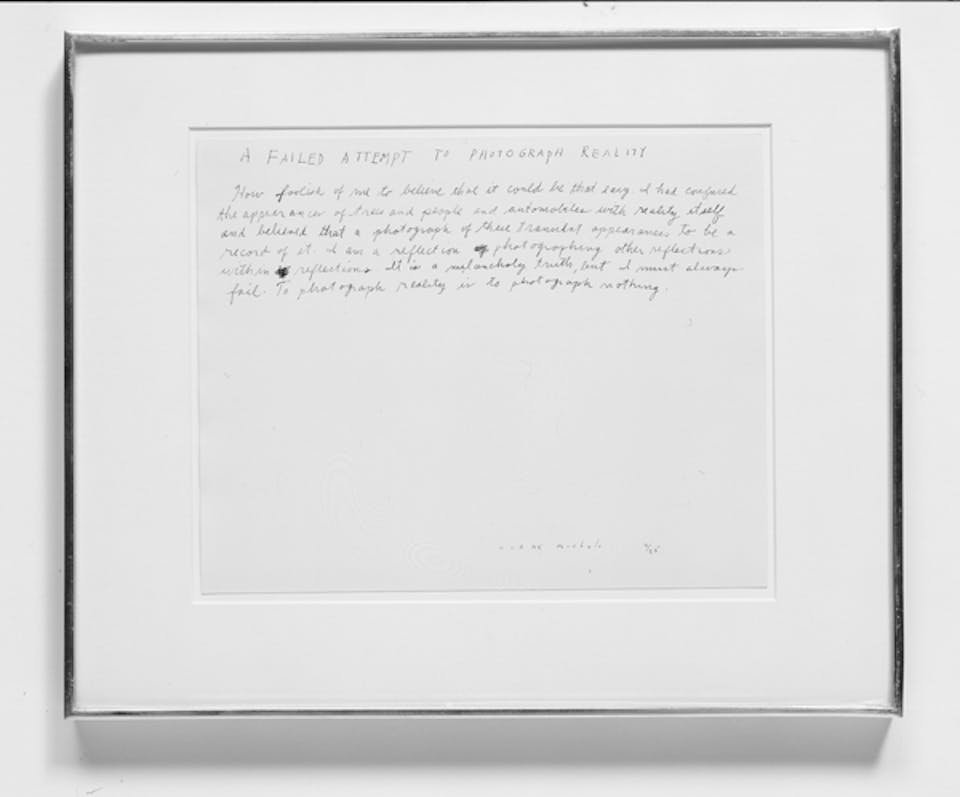 A FAILED ATTEMPT TO PHOTOGRAPH REALITY
How foolish of me to believe that it could be that easy. I had confused
the appearances of trees and people and automobiles with reality itself
and believed that a photograph of these transient appearances to be a
record of it. I am a reflection photographing other reflections
within reflections. It is a melancholy truth, but I must always
fail. To photograph reality is to photograph nothing.